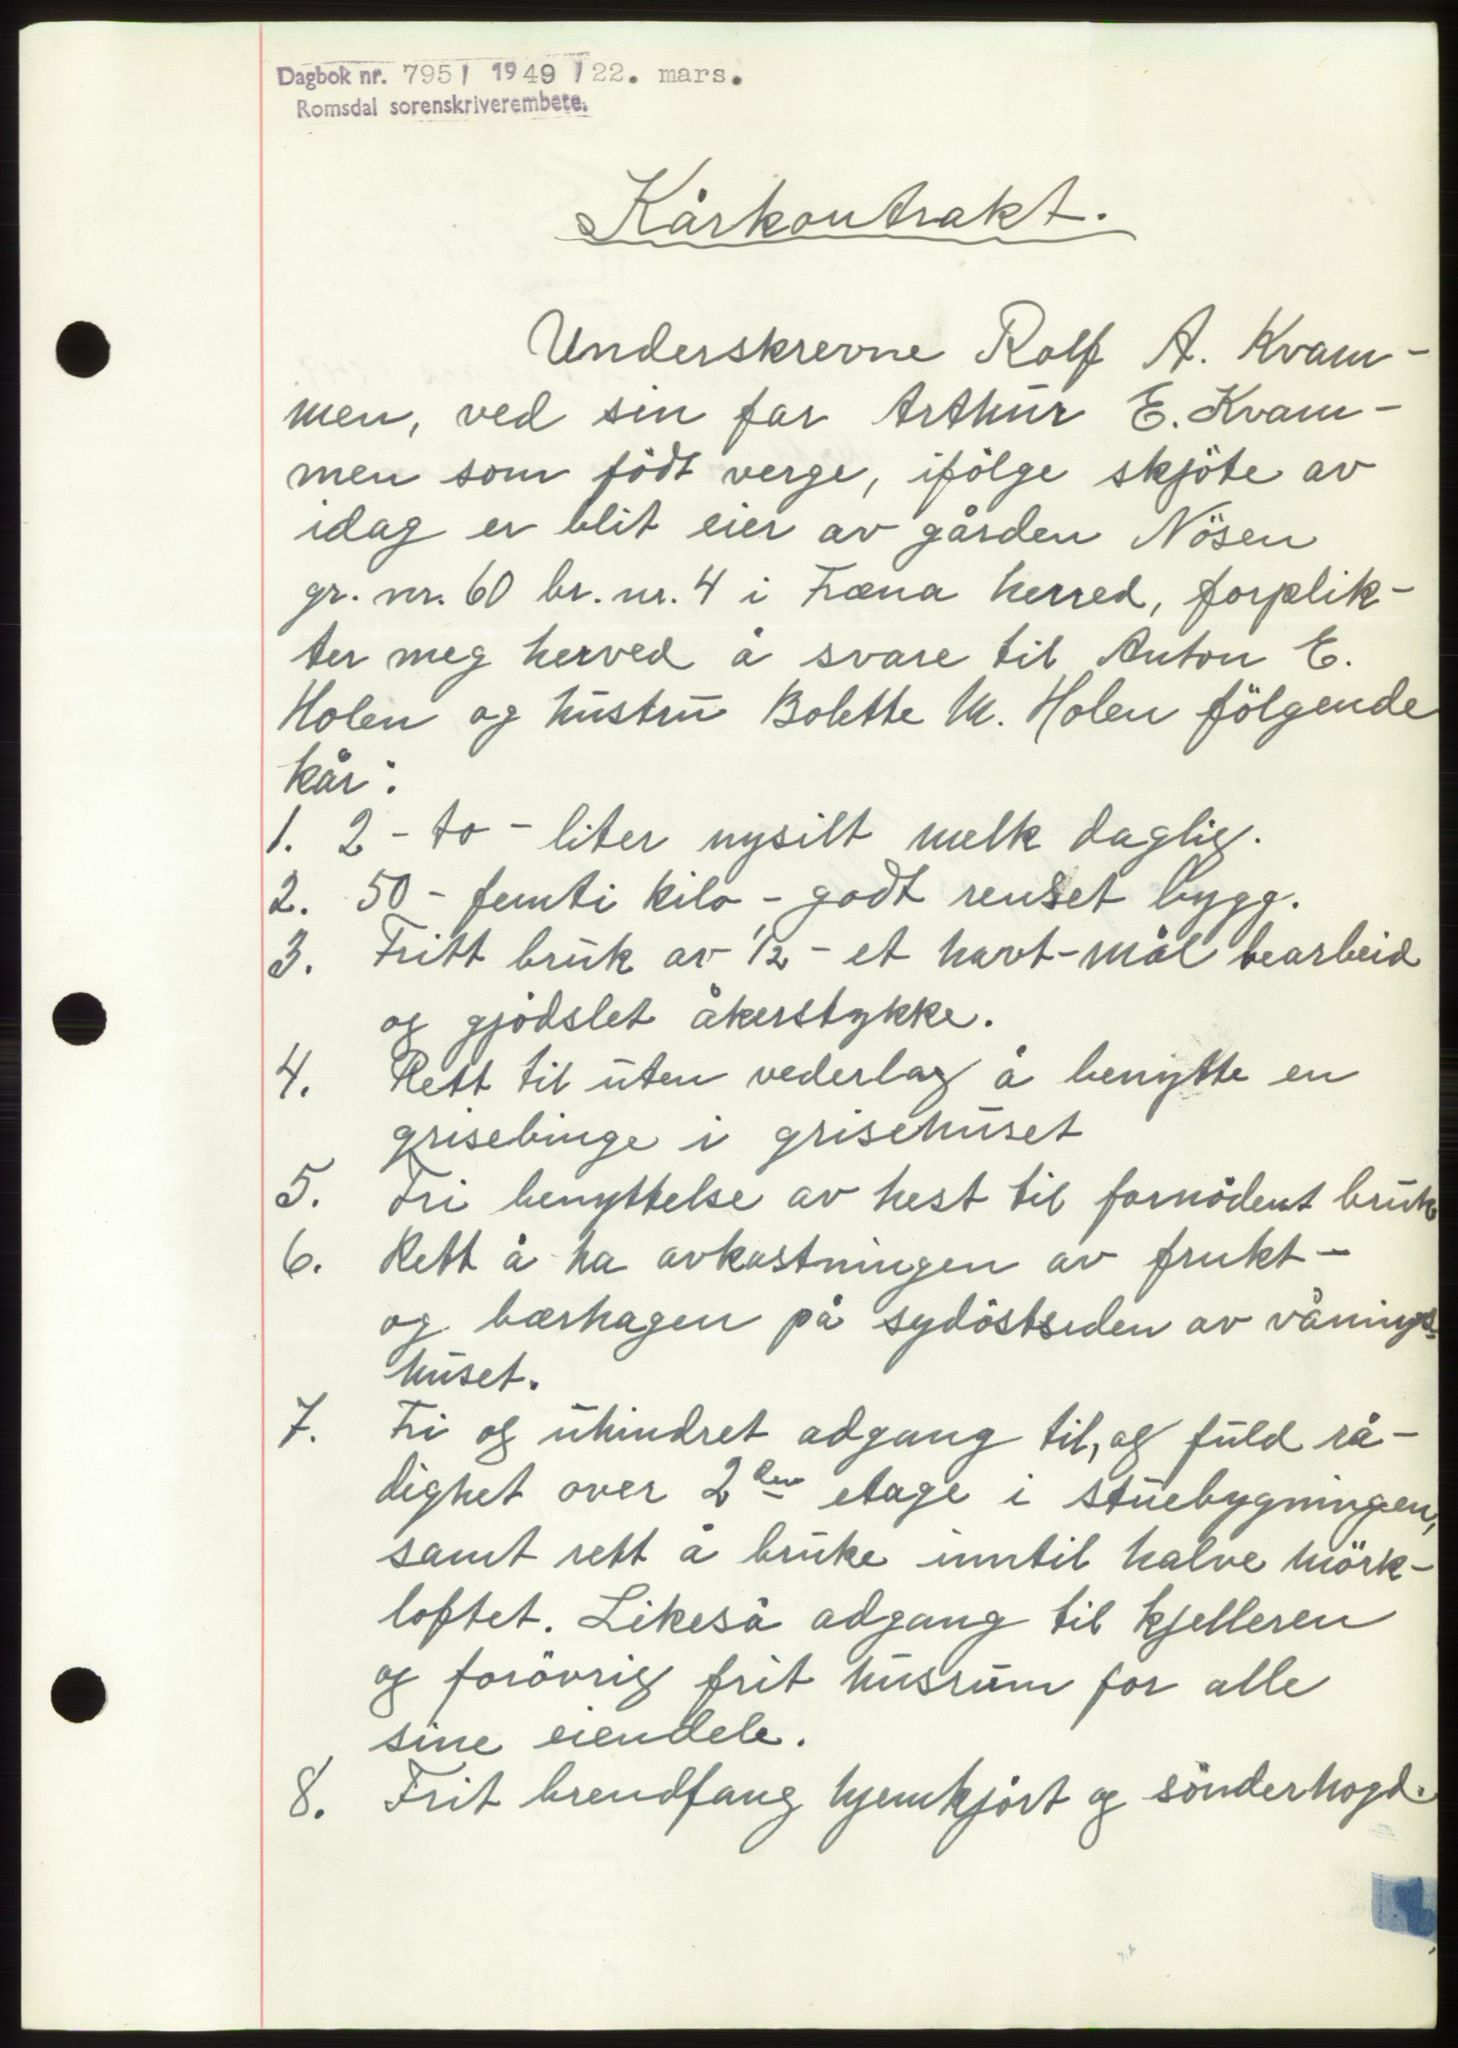 Dagbok nr. 795 / 1949 / 22. mars.
Romsdal sorenskriverembete.
Kårkontrakt.
Underskrevne Rolf A. Kvam-
men, ved sin far Arthur E. Kvam-
men som födt verge, ifölge skjöte av
idag er blit eier av gården Nösen
gr. nr. 60 br. nr. 4 i Fræna herred, forplik-
ter meg herved å svare til Anton E.
Holen og hustru Bolette M. Holen fölgende
kår:
1. 2 - to - liter nysilt melk daglig.
2. 50 - femti kilo - godt renset bygg.
3. Fritt bruk av 1/2 - et havt - mål bearbeid
og gjödslet åkerstykke.
4. Rett til uten vederlag å benytte en
grisebinge i grisehuset
5. Fri benyttelse av hest til fornödent bruk
6. Rett å ha avkastningen av frukt-
og bærhagen på sydöstsiden av vånings-
huset.
7. Fri og uhindret adgang til, og fuld rå-
dighet over 2den etage i stuebygningen,
samt rett å bruke inntil halve mörk-
loftet. Likeså adgang til kjelleren
og forövrig frit husrum for alle
sine eiendele.
8. Frit brendfang hjemkjört og sönderhogd.